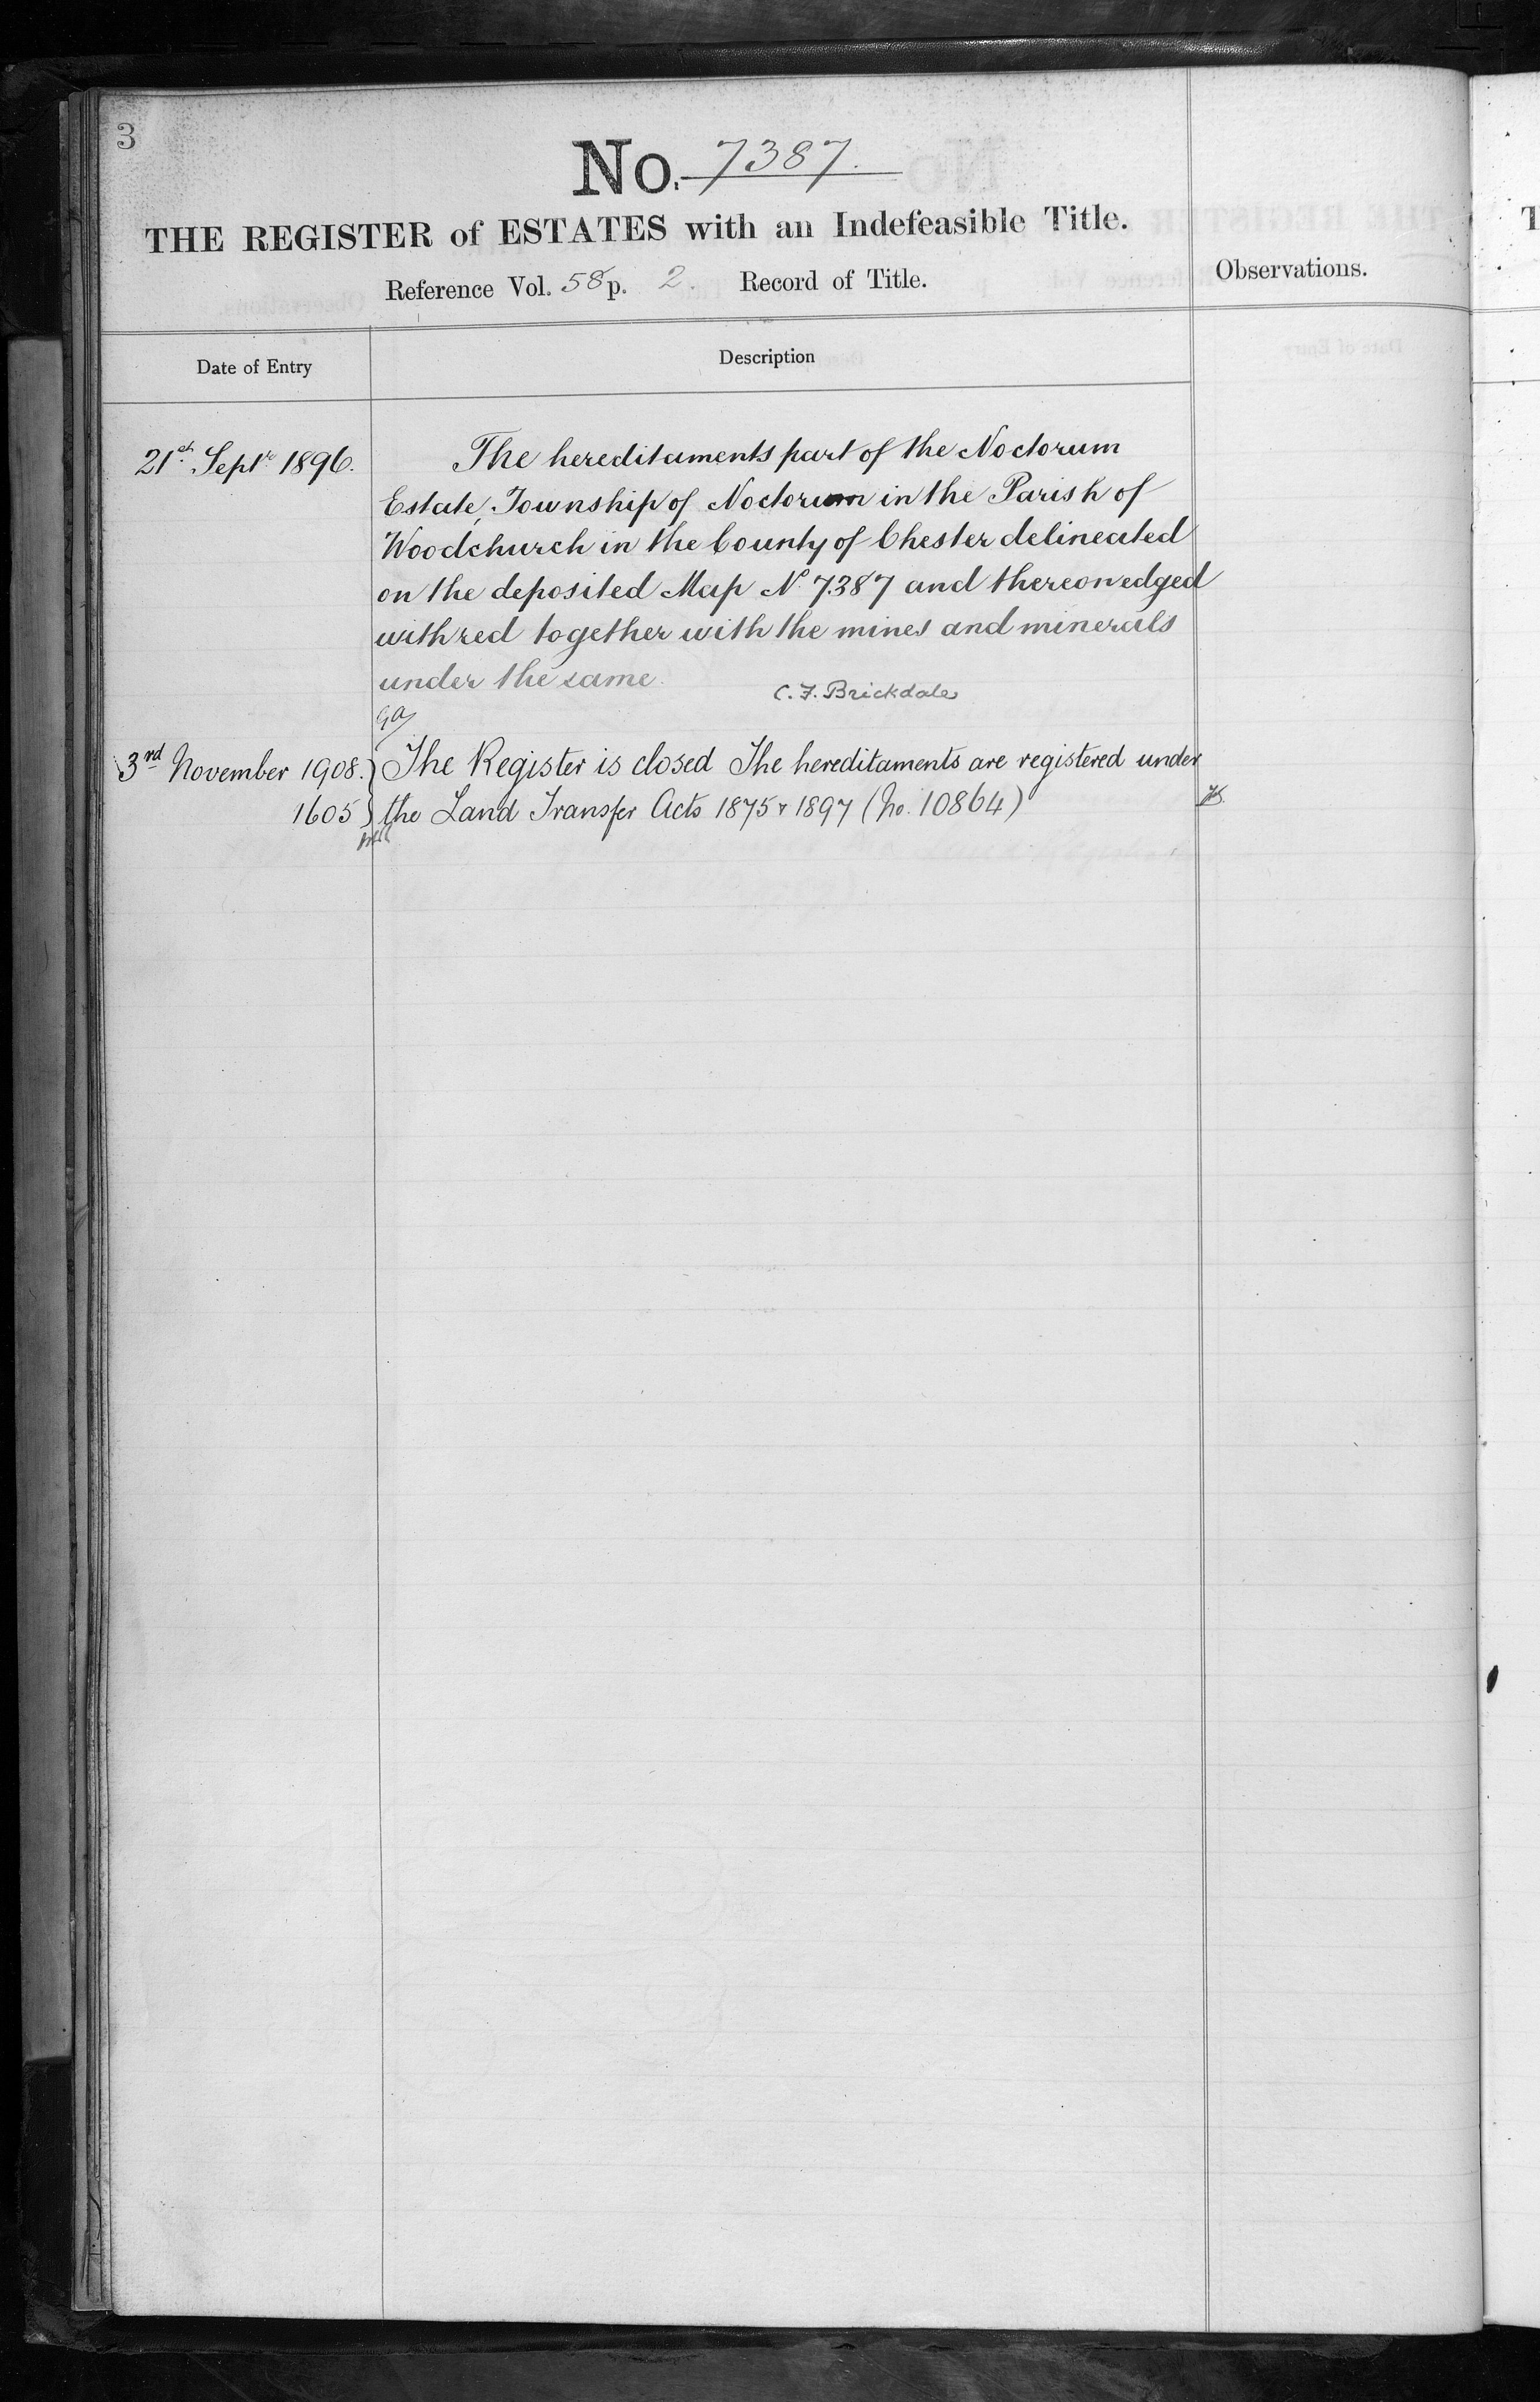 3
No. 7387.
THE REGISTER of ESTATES with an Indefeasible Title.
Reference Vol. 58 p. 2. Record of Title.
Observations.
Date of Entry
Description
21st Septr 1896.
The hereditaments part of the Noctorum
Estate, Township of Noctorum in the Parish of
Woodchurch in the County of Chester delineated
on the deposited Map No. 7387 and thereon edged
with red together with the mines and minerals
under the same.
C. F. Brickdale
3rd November 1908.
1605
The Register is closed The hereditaments are registered under
the Land Transfer Acts 1875 & 1897 (No. 10864)